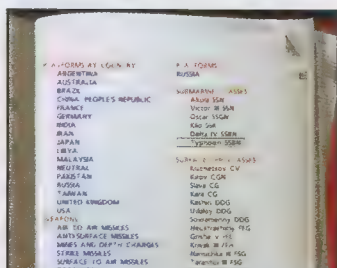 PLATFORMS BY COUNTRY
ARGENTINA
AUSTRALIA
BRAZIL
CHINA, PEOPLE'S REPUBLIC
FRANCE
GERMANY
INDIA
IRAN
JAPAN
LIBYA
MALAYSIA
NEUTRAL
PAKISTAN
RUSSIA
TAIWAN
UNITED KINGDOM
USA
WEAPONS
AIR TO AIR MISSILES
ANTISURFACE MISSILES
MINES AND DEPTH CHARGES
STRIKE MISSILES
SURFACE TO AIR MISSILES
PLATFORMS
RUSSIA
SUBMARINE CLASSES
Akula SSN
Victor III SSN
Oscar SSGN
Kilo SSK
Delta IV SSBN
Typhoon SSBN
SURFACE SHIP CLASSES
Kuznetsov CV
Kirov CGN
Slava CG
Kara CG
Kashin DDG
Udaloy DDG
Sovremenny DDG
Neustrashimy FFG
Grisha V FFL
Krivak III FFH
Nanuchka III FSG
Tarantul III FSG